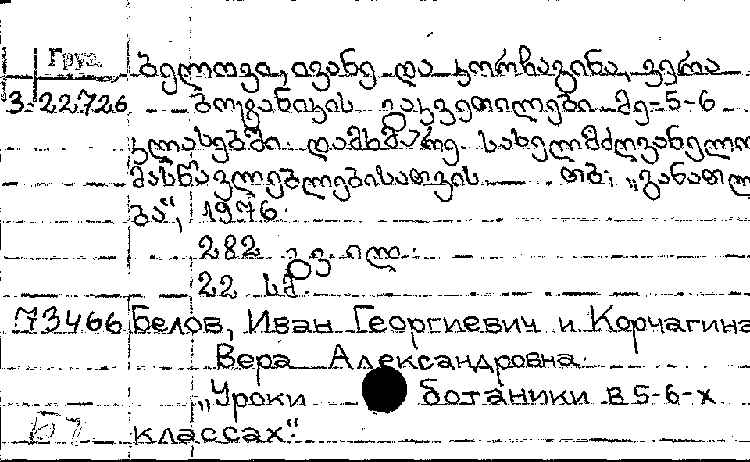 Груз.
ბელოვი, ივანე და კორჩაგინა, ვერა
3-22726 ბოტანიკის გაკვეთილები მე-5-6
კლასებში. დამხმარე სახელმძღვანელო
მასწავლებლებისათვის. თბ., „განათლ
ბა“, 1976.
282 გვ. ილ.
22 სმ.
73466 Белов, Иван Георгиевич и Корчагина
Вера Александровна.
„Уроки ботаники в 5-6-х
классах“.